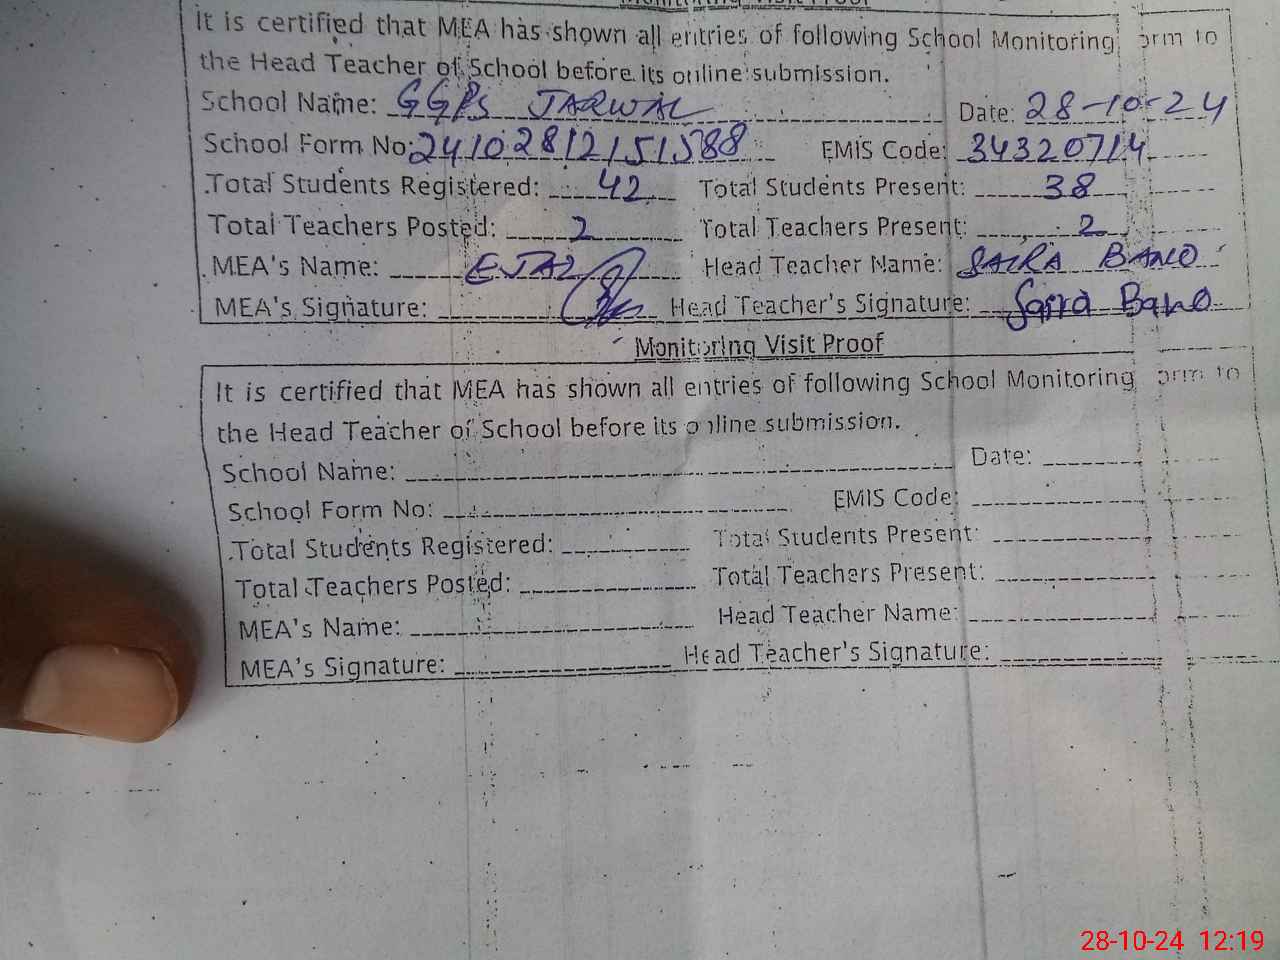 Monitoring Visit Proof
It is certified that MEA has shown all entries of following School Monitoring orm to
the Head Teacher of School before its online submission.
School Name: GGPS JARWAL Date: 28-10-24
School Form No: 24102812151588 EMIS Code: 34320714
Total Students Registered: 42 Total Students Present: 38
Total Teachers Posted: 2 Total Teachers Present: 2
MEA's Name: EJAZ Head Teacher Name: SAIRA BANO
MEA's Signature: Head Teacher's Signature: Saira Bano
Monitoring Visit Proof
It is certified that MEA has shown all entries of following School Monitoring orm to
the Head Teacher of School before its online submission.
School Name: Date:
School Form No: EMIS Code:
Total Students Registered: Total Students Present:
Total Teachers Posted: Total Teachers Present:
MEA's Name: Head Teacher Name:
MEA's Signature: Head Teacher's Signature:
28-10-24 12:19